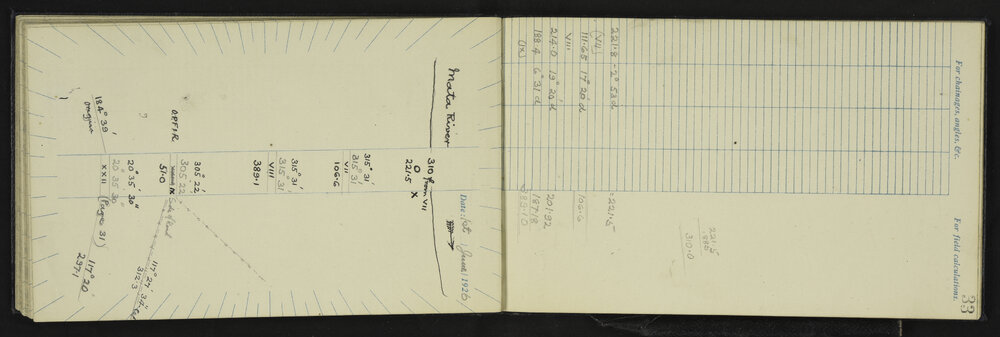 For chainages, angles, &c.
For field calculations.
33
221·8 - 2° 53'd = 221·5
(VII)
111·65 17° 20'd 106·6
VIII
214·0 19° 20'd 201·92
188·4 6° 31'd 187·18
(IX) 389·10
221·5
88·5
310·0
Date: 1st June 1926
Mata River
310 from VII
O
221·5 X
315° 31'
315° 31'
VII
106·6
315° 31'
315° 31'
VIII
389·1
305° 22'
305° 22'
IX
51·0
Side of Road
20° 35' 30"
20° 35' 30"
XXII (Page 31)
117° 27' 34"
312·3
117° 20'
237·1
O.P.F.I.R.
?
184° 39'